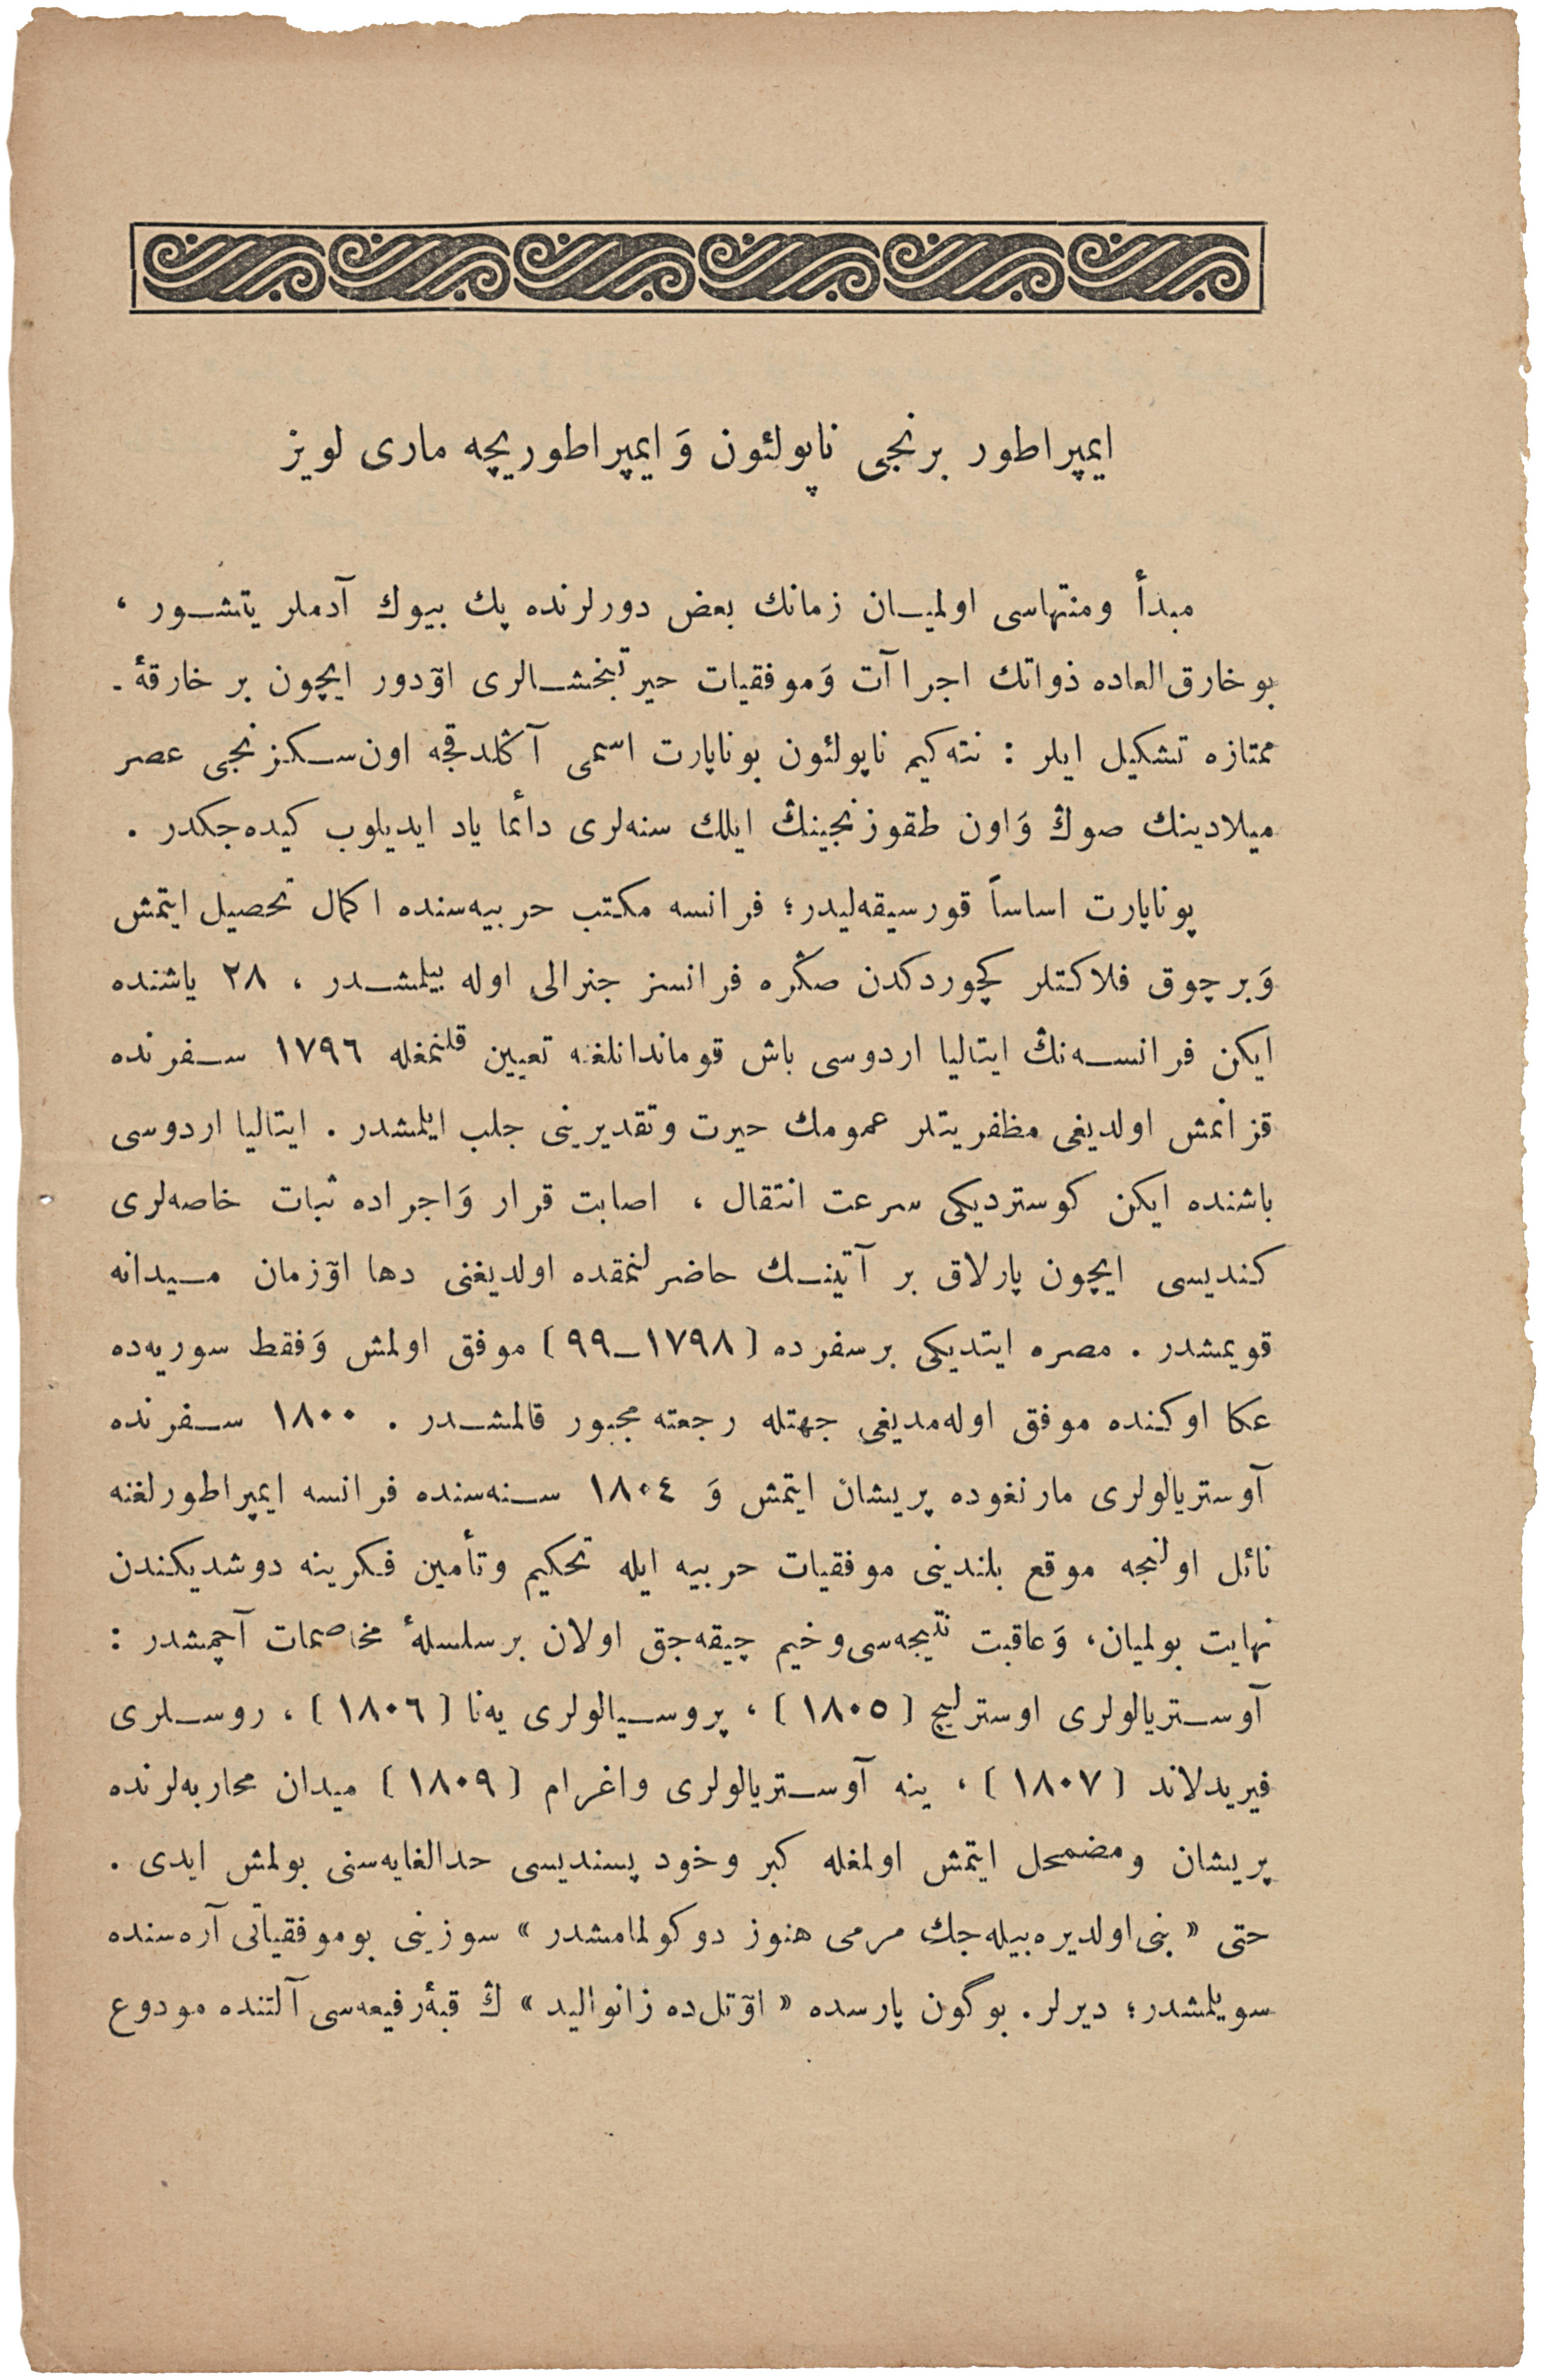 ایمپراطور برنجی ناپولئون وَ ایمپراطوریچه ماری لویز
مبدأ ومنتهاسی اولمیـان زمانك بعض دورلرنده پك بیوك آدملر یتشـور ،
بو خارق‌العاده ذواتك اجراآت وَموفقیات حیرتبخشـالری اوٓ دور ایچون بر خارقهٔ ـ
ممتازه تشکیل ایلر : نته‌کیم ناپولئون بوناپارت اسمی آڭلدقجه اون‌سـکزنجی عصر
میلادینك صوڭ وَاون طقوزنجینڭ ایلك سنه‌لری دائما یاد ایدیلوب کیده‌جکدر .
بوناپارت اساساً قورسیقه‌لیدر؛ فرانسه مکتب حربیه‌سنده اکمال تحصیل ایتمش
وَبر چوق فلاکتلر کچوردکدن صڭره فرانسز جنرالی اوله بیلمشـدر ، ۲۸ یاشنده
ایکن فرانسـه‌نڭ ایتالیا اردوسی باش قوماندانلغنه تعیین قلنمغله ۱۷۹٦ سـفرنده
قزانمش اولدیغی مظفریتلر عمومك حیرت وتقدیرینی جلب ایلمشدر . ایتالیا اردوسی
باشنده ایکن کوستردیکی سرعت انتقال ، اصابت قرار وَاجراده ثبات خاصه‌لری
کندیسی ایچون پارلاق بر آتینـك حاضرلنمقده اولدیغنی دها اوٓزمان مـیدانه
قویمشدر . مصره ایتدیکی برسفرده [ ۱۷۹۸ـ۹۹ ] موفق اولمش وَفقط سوریه‌ده
عکا اوکنده موفق اوله‌مدیغی جهتله رجعته مجبور قالمشـدر . ۱۸۰۰ سـفرنده
آوستریالولری مارنغوده پریشان ایتمش وَ ۱۸۰٤ سـنه‌سنده فرانسه ایمپراطورلغنه
نائل اولنجه موقع بلندینی موفقیات حربیه ایله تحکیم وتأمین فکرینه دوشدیکندن
نهایت بولمیان، وَعاقبت نتیجه‌سی‌وخیم چیقه‌جق اولان برسلسلهٔ مخاصمات آچمشدر :
آوسـتریالولری اوسترلیچ [ ۱۸۰۵ ] ، پروسـیالولری یه‌نا [ ۱۸۰٦ ] ، روسـلری
فیریدلاند [ ۱۸۰۷ ] ، ینه آوسـتریالولری واغرام [ ۱۸۰۹ ] میدان محاربه‌لرنده
پریشان ومضمحل ایتمش اولمغله کبر وخود پسندیسی حدالغایه‌سنی بولمش ایدی .
حتی « بنی‌اولدیره‌بیله‌جك مرمی هنوز دوکولمامشدر » سوزینی بوموفقیاتی آره‌سنده
سویلمشدر؛ دیرلر. بوگون پارسده « اوٓتل‌ده زانوالید » ڭ قبهٔ‌رفیعه‌سی آلتنده مودوع